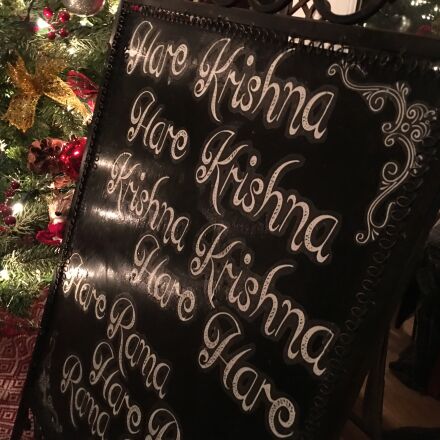 Hare Krishna
Hare Krishna
Krishna Krishna
Hare Hare
Hare Rama
Hare
Rama